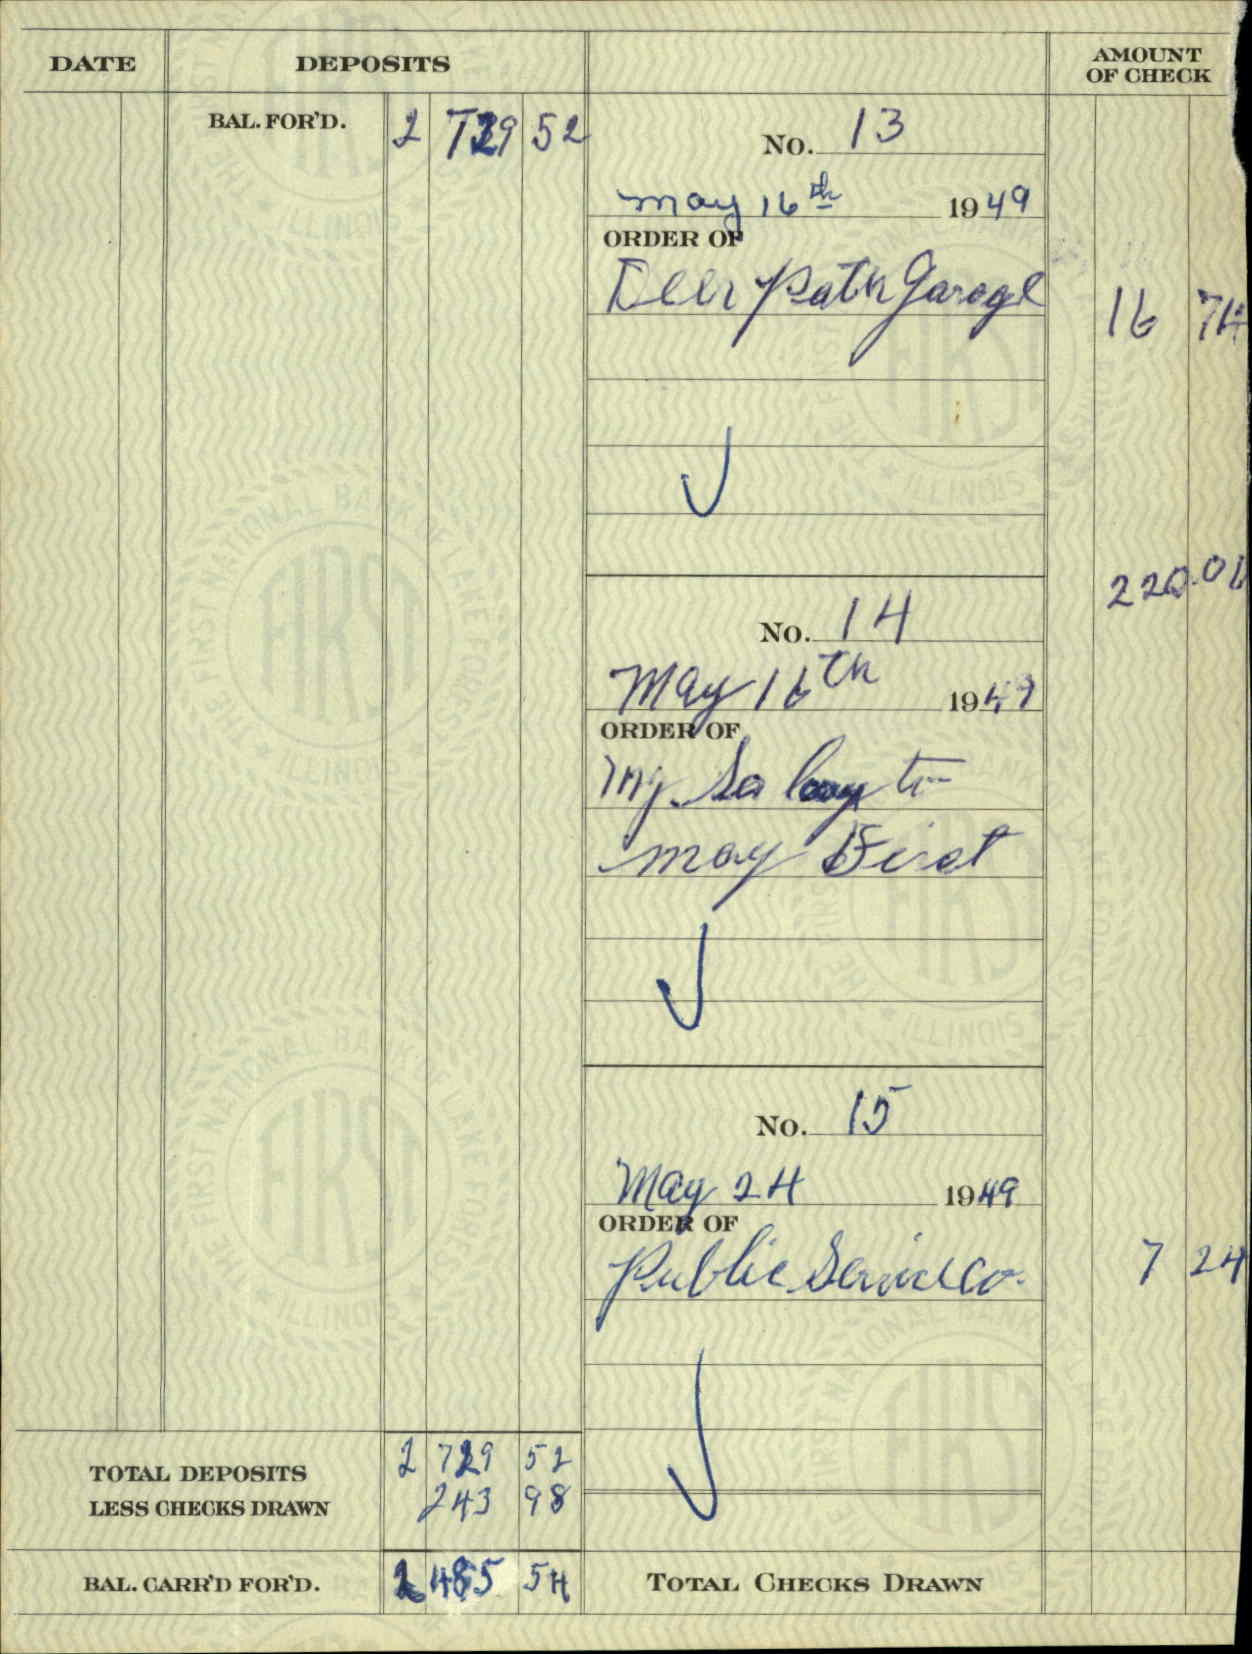 DATE DEPOSITS AMOUNT
OF CHECK
BAL. FOR'D. 2 729 52
No. 13
May 16th 1949
ORDER OF
Deer Path Garage 16 74
220.00
No. 14
May 16th 1949
ORDER OF
my to
may First
No. 15
May 24 1949
ORDER OF
Public Service Co. 7 24
TOTAL DEPOSITS 2 729 52
LESS CHECKS DRAWN 243 98
BAL. CARR'D FOR'D. 2 485 54 TOTAL CHECKS DRAWN
FIRST NATIONAL BANK OF LAKE FOREST
ILLINOIS
FIRST